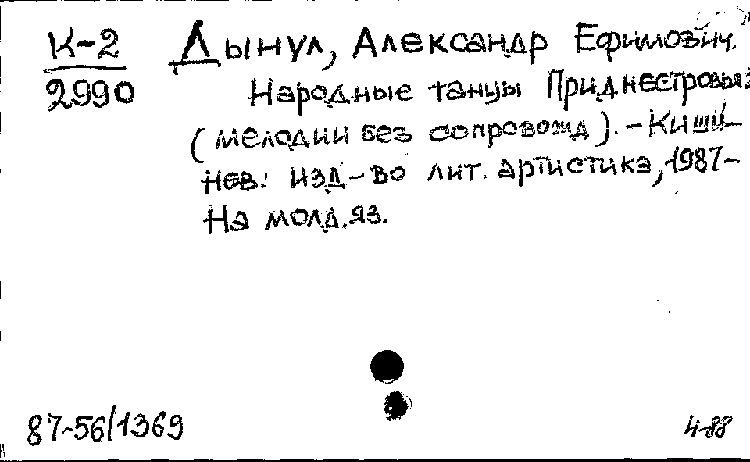 К-2 Дынул, Александр Ефимович.
2990 Народные танцы Приднестровья:
(мелодии без сопровожд). - Киши-
нев: изд-во лит. артистикэ, 1987-
На молд. яз.
87-56/1369 4-88